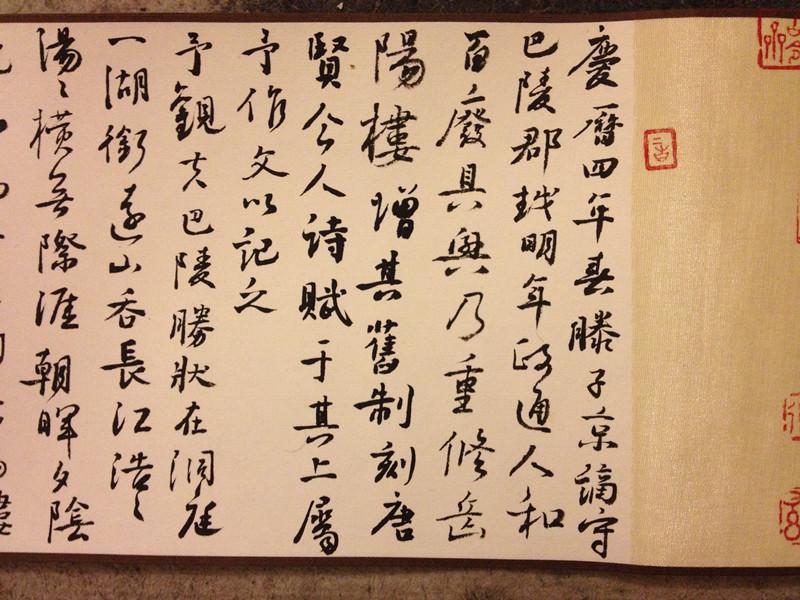 慶曆四年春滕子京謫守
巴陵郡越明年政通人和
百廢具興乃重修岳
陽樓增其舊制刻唐
賢今人詩賦于其上屬
予作文以記之
予觀夫巴陵勝狀在洞庭
一湖銜遠山吞長江浩〻
湯〻橫無際涯朝暉夕陰